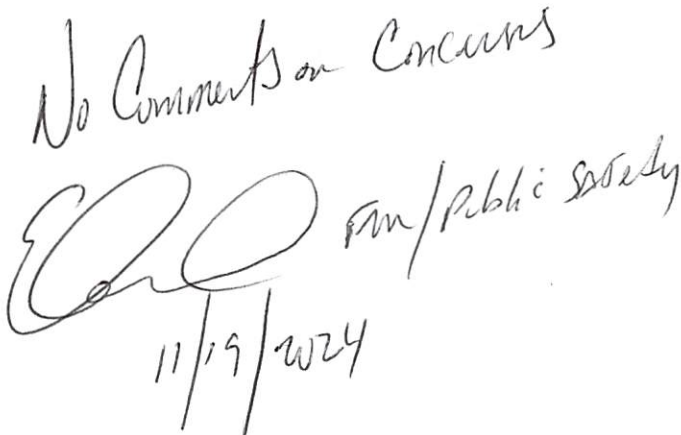 No Comments or Concerns
Fire/Public Safety
11/19/2024